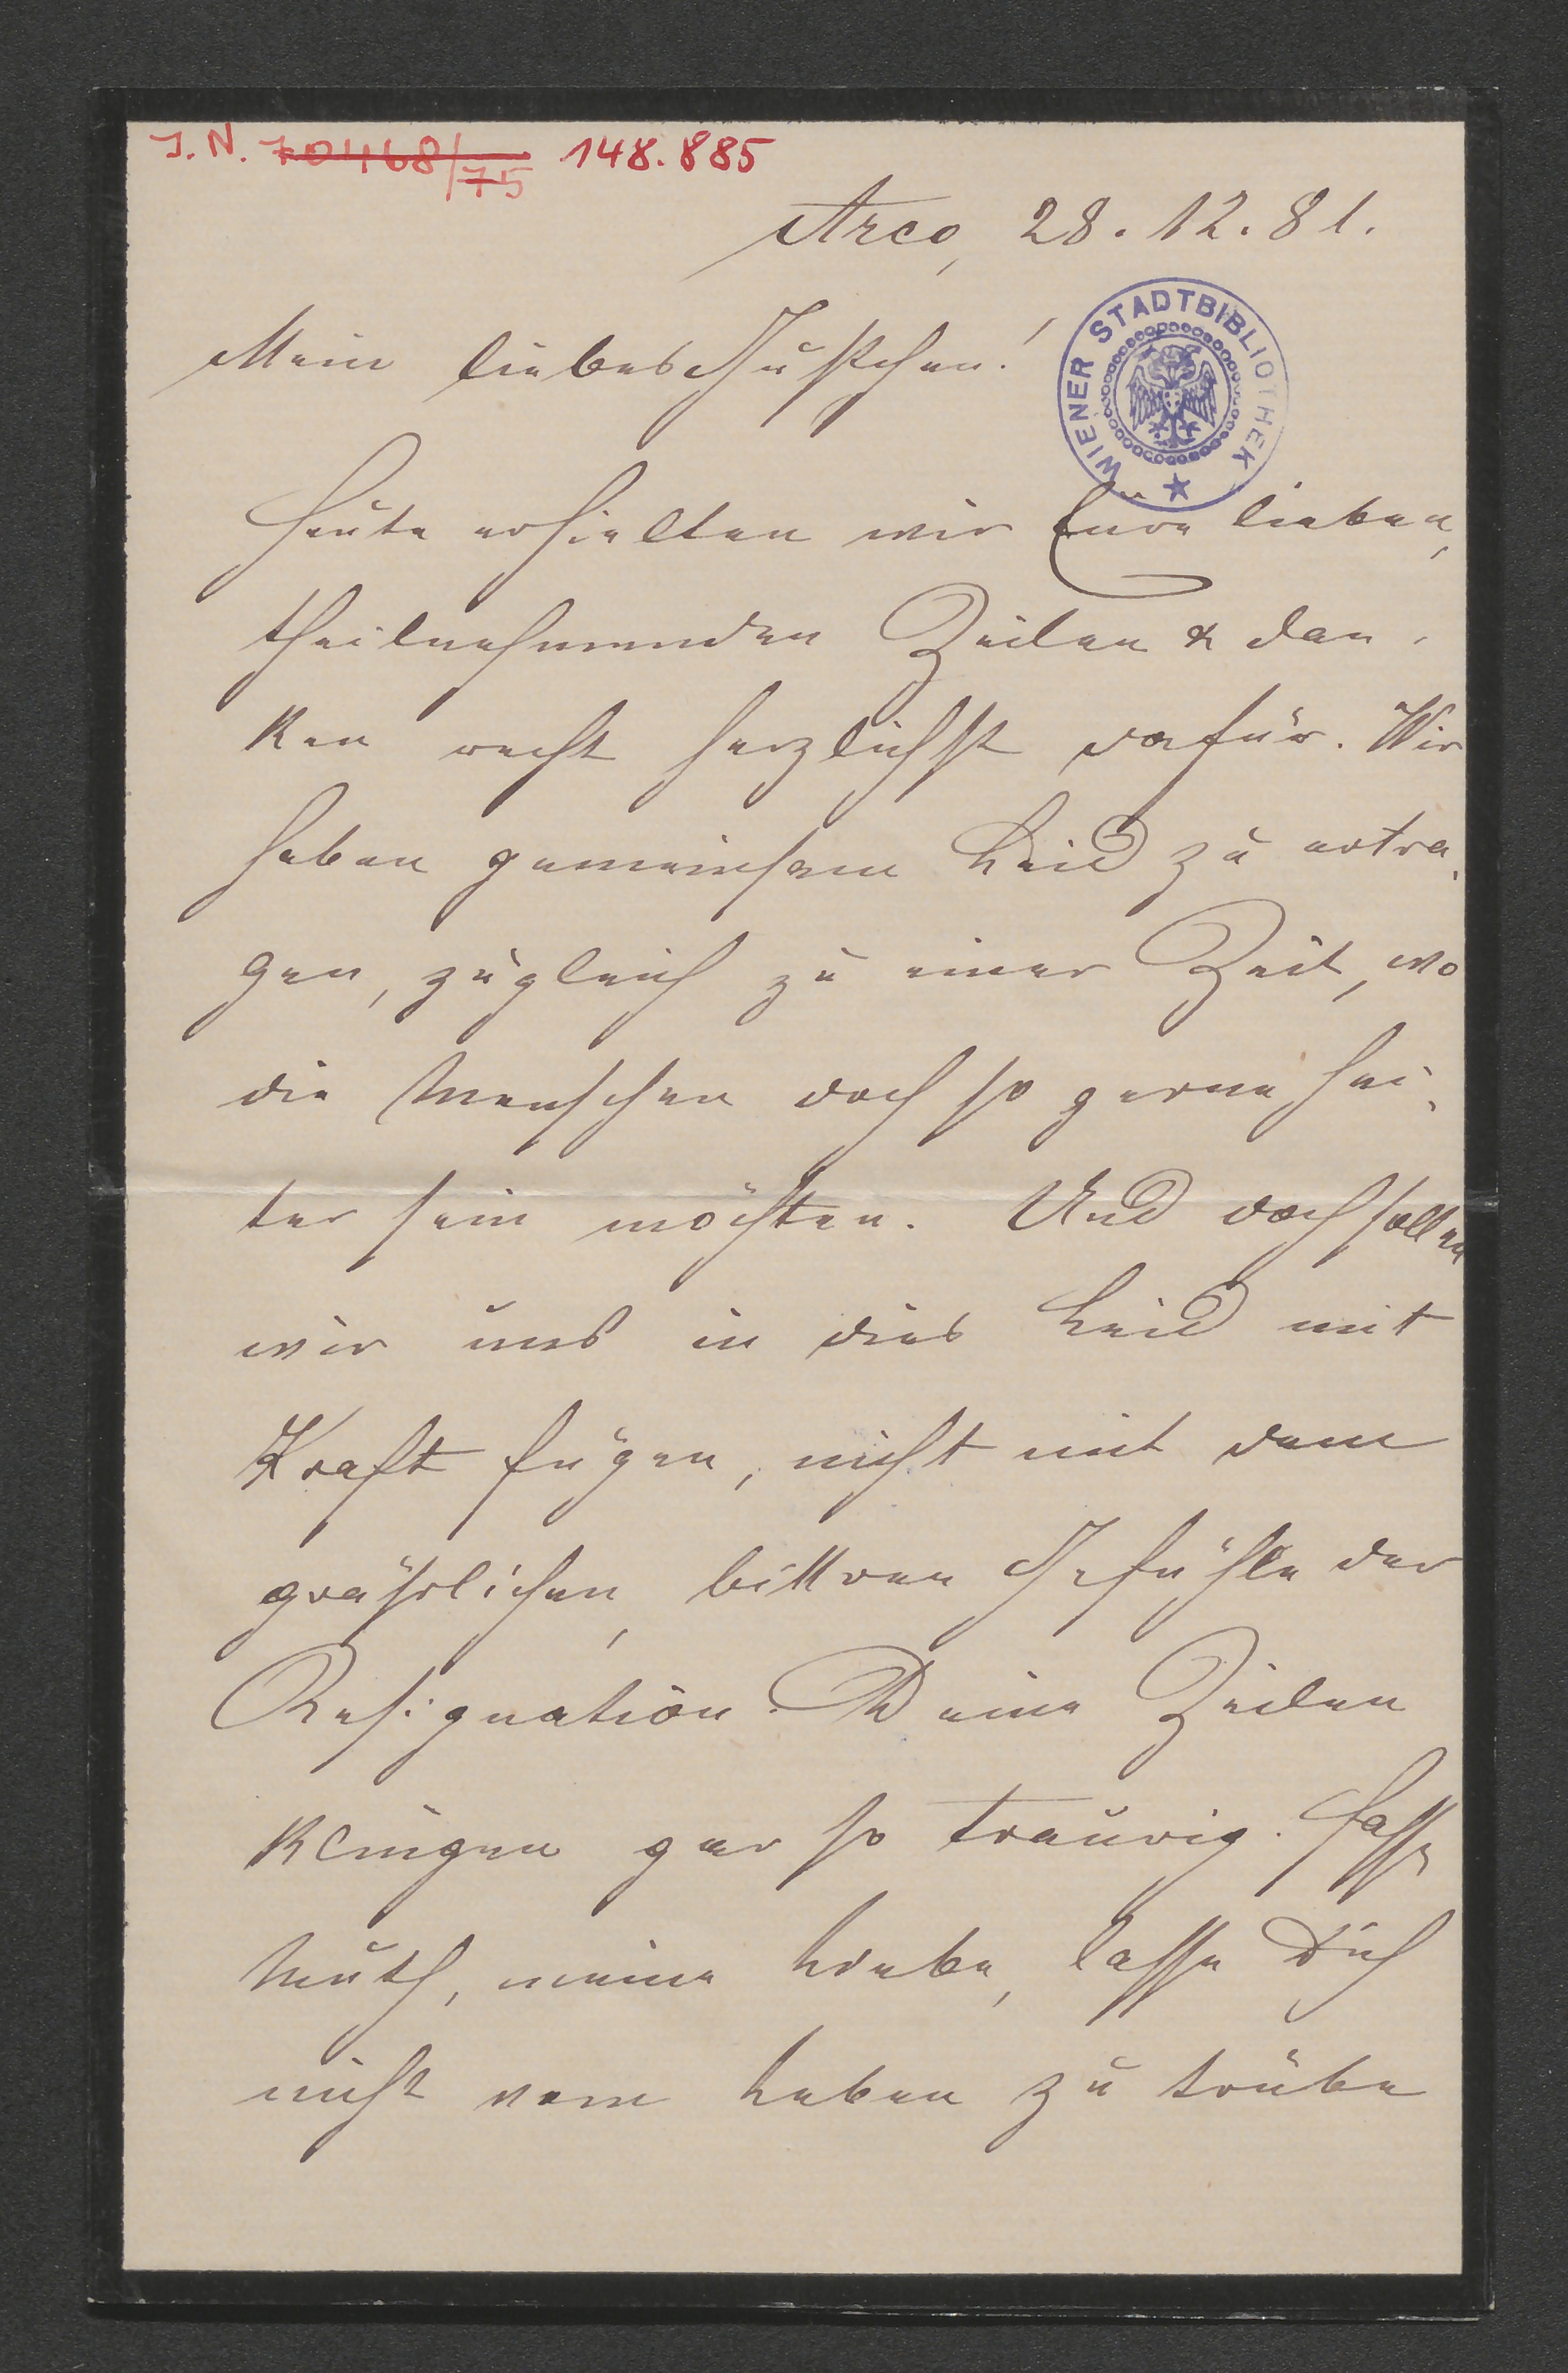 J. N. 70468/75 148.885
Arco, 28. 12. 81.
Mein liebes Gustchen!
WIENER STADTBIBLIOTHEK
Heute erhielten wir Eure lieben,
theilnehmenden Zeilen & dan-
ken recht herzlichst dafür. Wir
haben gemeinsam Leid zu ertra-
gen, zugleich zu einer Zeit, wo
die Menschen doch so gerne hei-
ter sein möchten. Und doch sollen
wir uns in dies Leid mit
Kraft fügen, nicht mit dem
gräßlichen, bittren Gefühle der
Resignation. Deine Zeilen
klingen gar so traurig. Fasse
Muth, meine Liebe, lasse Dich
nicht vom Leben zu trübe